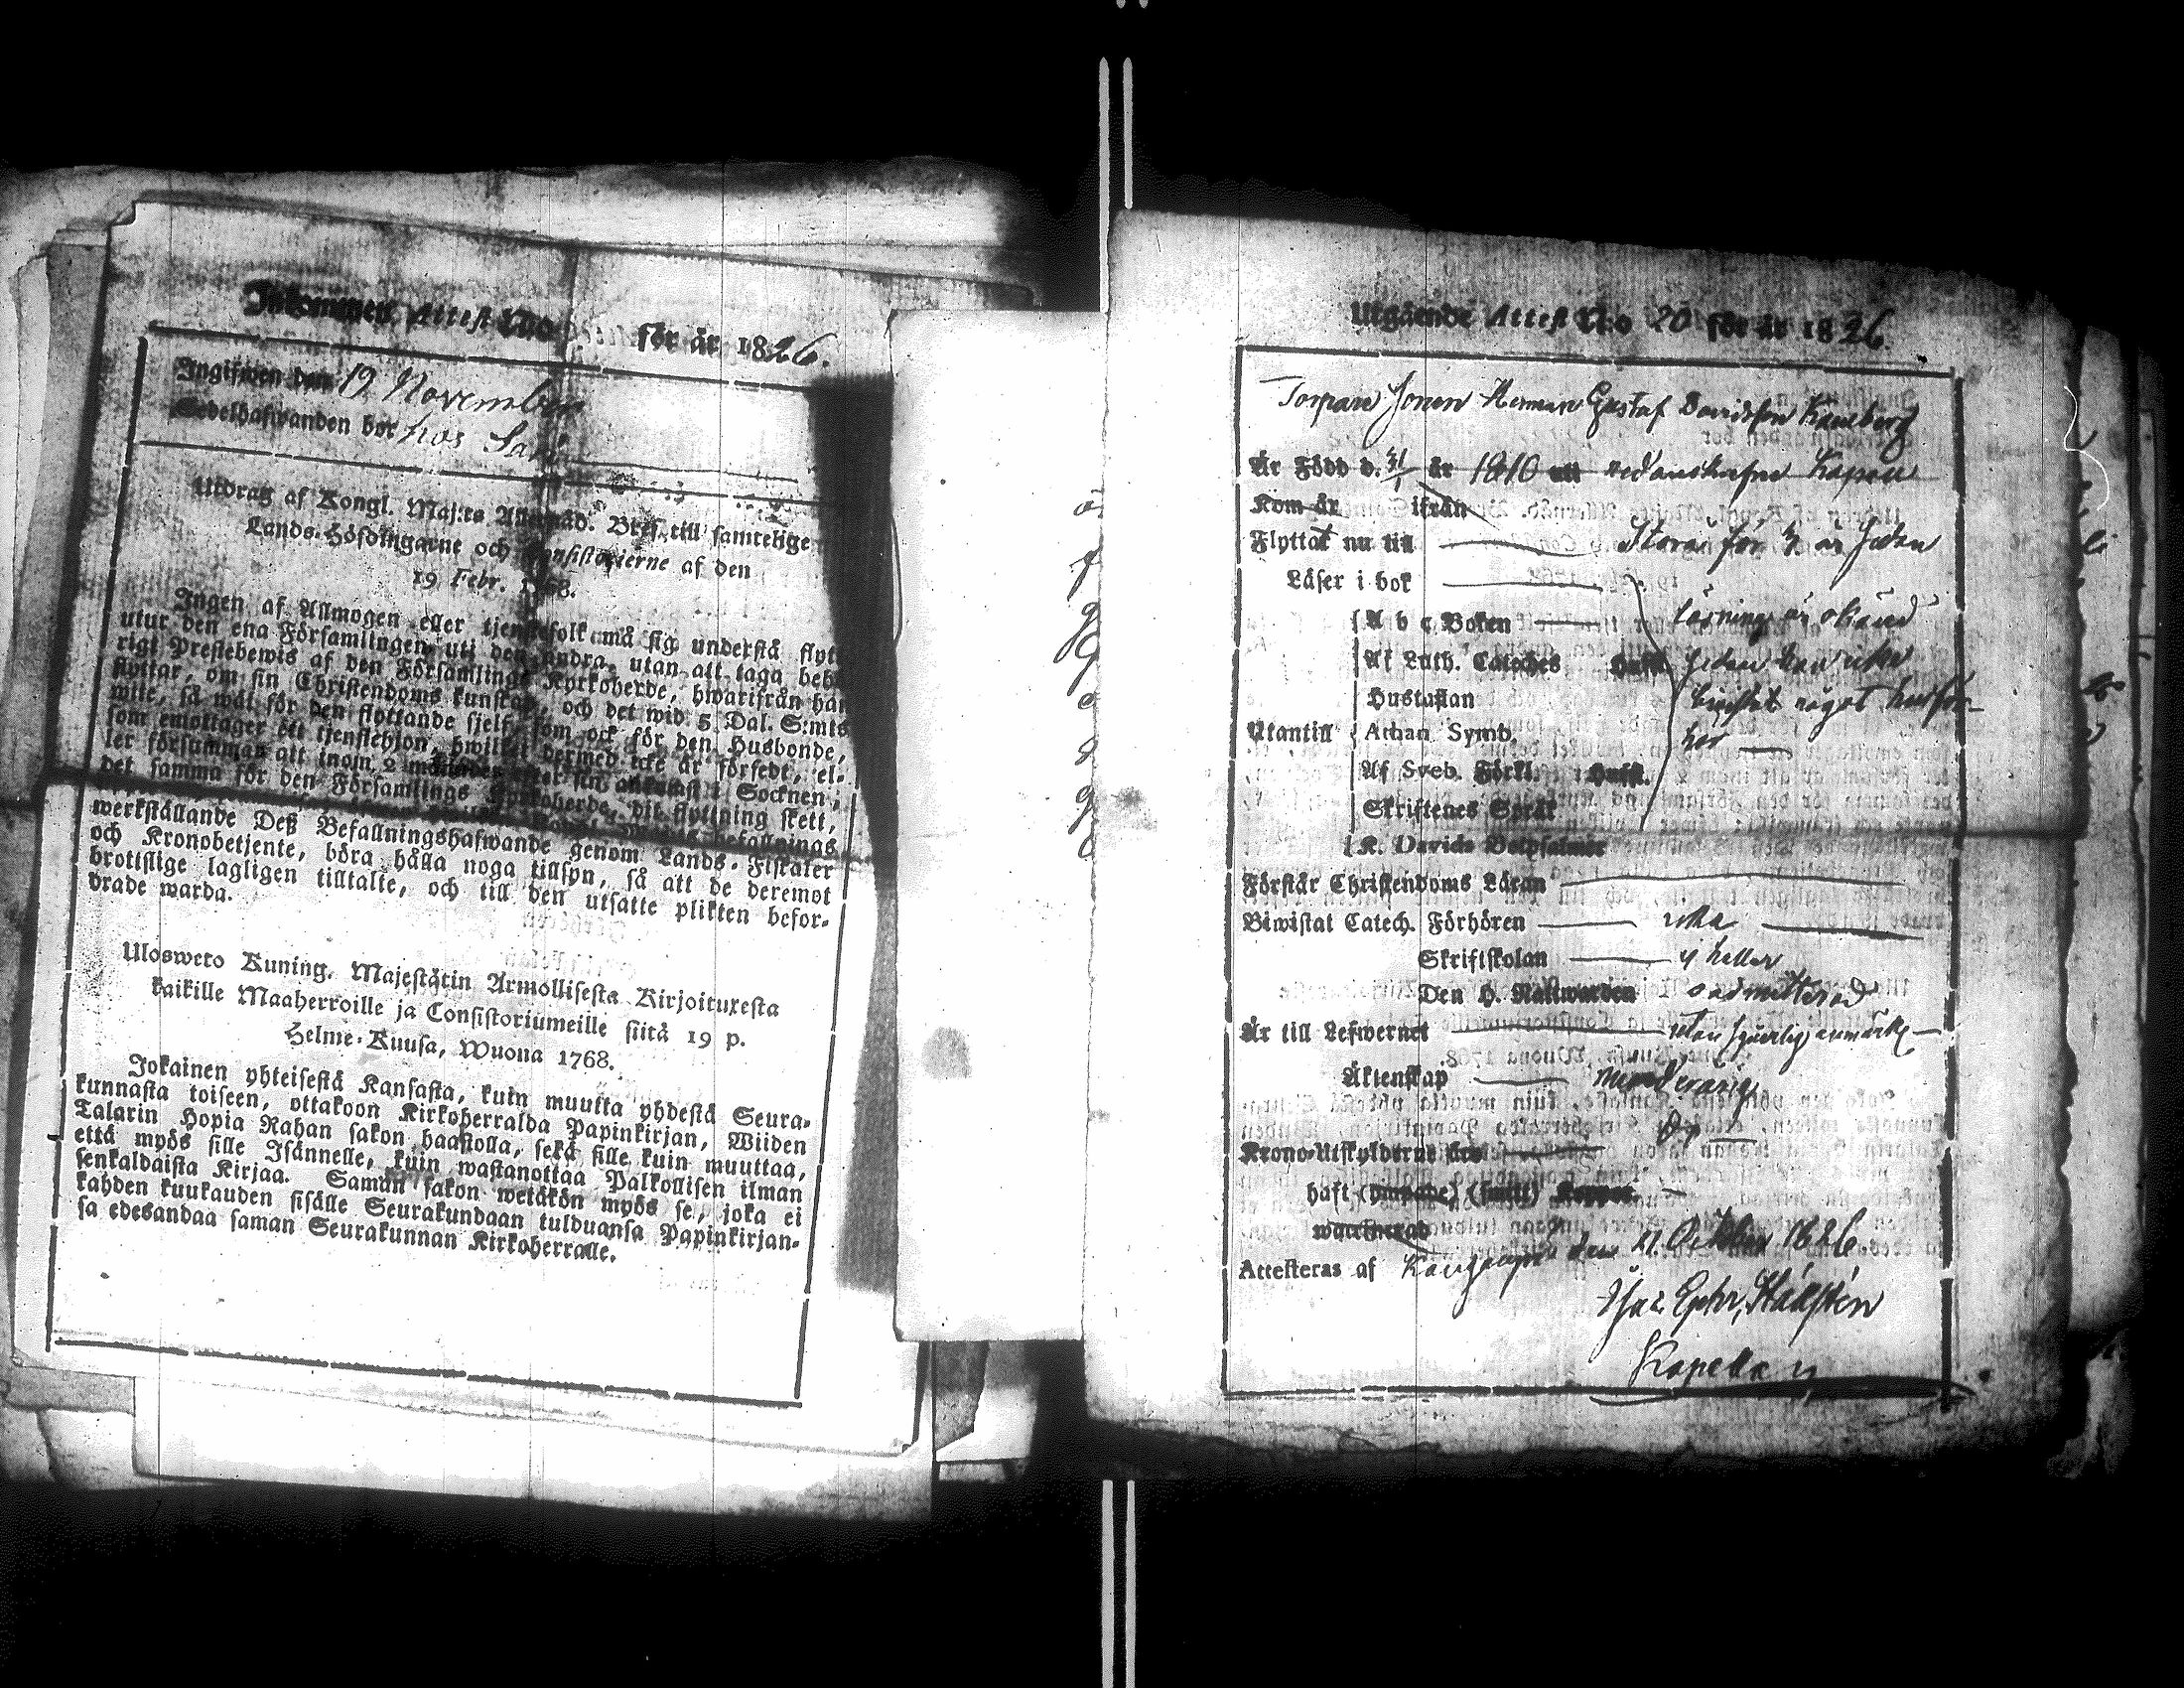 Inkommen Attest N:o för år 1826.
Ingifwen den 19 November
Sedelhafwanden bor hos
Utdrag af Kongl. Maj:ts Allernåd. Bref till samtelige
Lands-Höfdingarne och Consistorierne af den
19 Febr. 1768.
Ingen af Allmogen eller tjenstefolk må sig understå flyt-
utur den ena Församlingen uti den andra, utan att taga behö-
rigt Prestebewis af den Församlings Kyrkoherde, hwarifrån han
flyttar, om sin Christendoms kunskap, och det wid 5 Dal. S:mts
wite, så wäl för den flyttande sjelf, som ock för den Husbonde,
som emottager ett tjenstehjon, hwilket dermed icke är försedt, el-
ler försummar att inom 2 månader efter sin ankomst i Socknen,
det samma för den Församlings Kyrkoherde, dit flyttning skett,
befallnings
werkställande Deß Befallningshafwande genom Lands-Fiskaler
och Kronobetjente, böra hålla noga tillsyn, så att de deremot
brottslige lagligen tilltalte, och till den utsatte plikten befor-
drade warda.
Ulosweto Kuning. Majestätin Armollisesta Kirjoituxesta
kaikille Maaherroille ja Consistoriumeille siitä 19 p.
Helme-Kuusa, Wuona 1768.
Jokainen yhteisestä Kansasta, kuin muutta yhdestä Seura-
kunnasta toiseen, ottakoon Kirkoherralda Papinkirjan, Wiiden
Talarin Hopia Rahan sakon haastolla, sekä sille kuin muuttaa,
että myös sille Isännelle, kuin wastanottaa Palkollisen ilman
senkaldaista Kirjaa. Saman sakon wetäkön myös se, joka ei
kahden kuukauden sisälle Seurakundaan tulduansa Papinkirjan-
sa edesandaa saman Seurakunnan Kirkoherralle.
Utgående Attest N:o 20 för år 1826.
Torpare Sonen Herman Gustaf Davidsson
Är Född d. 31/1 år 1810 uti nedanskrefne Kapell
Kom år ifrån
Flyttat nu till för år sedan
Läser i bok
A b c Boken läsning är okänd
Af Luth. Cateches Hufst. sedan han icke
Hustaflan biwistat något husför-
Utantill Athan. Symb. hör
Af Sveb. Förkl. Hufst.
Skriftenes Språk
K. Davids Botpsalmer
Förstår Christendoms Läran
Biwistat Catech. Förhören icke
Skriftskolan ej heller
Den H. Nattwarden oadmitterad
Är till Lefwernet utan anmärk
Äktenskap minderårig
Krono-Utskylderne års
haft (ympade) (smitt) Koppor
waccinerad
Attesteras af den 21 October 1826.
Kapellan